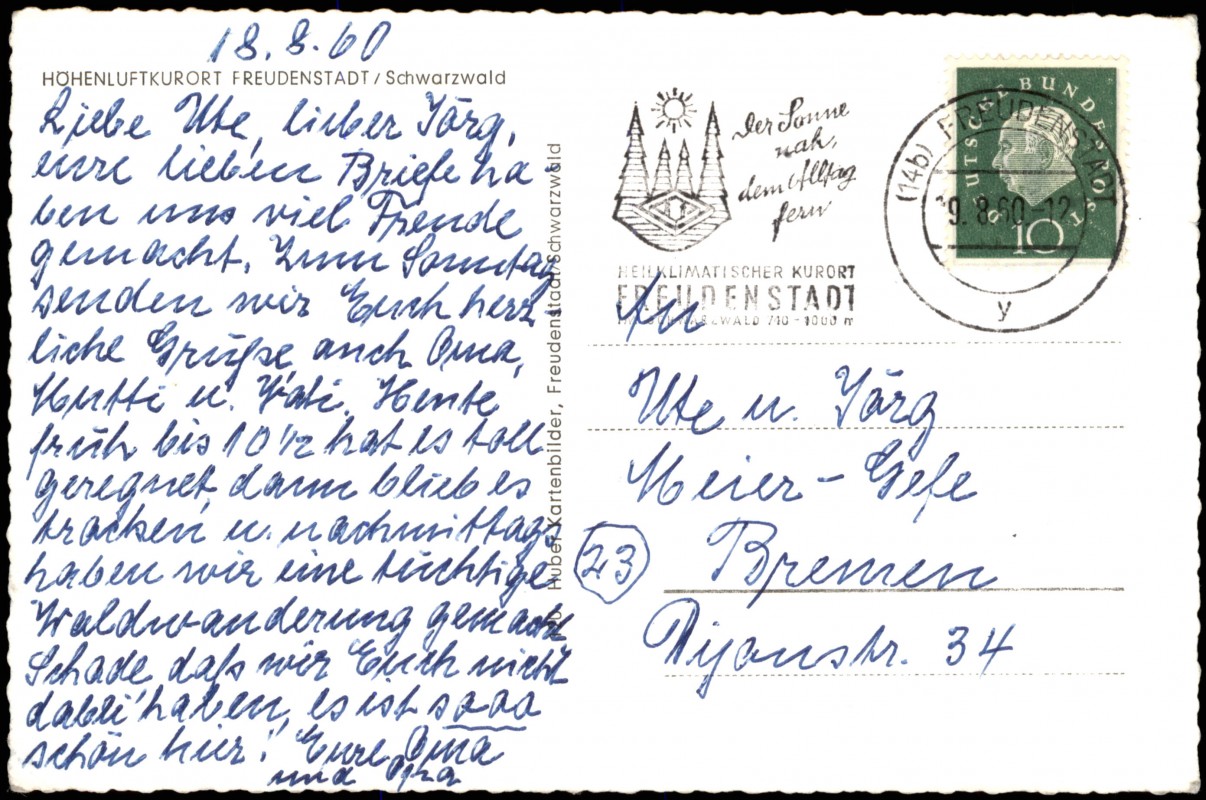 18.8.60
HÖHENLUFTKURORT FREUDENSTADT / Schwarzwald
Liebe Ute, lieber Jörg,
eure lieben Briefe ha-
ben uns viel Freude
gemacht. Zum Sonntag
senden wir Euch herz-
liche Grüße, auch Oma,
Mutti u. Vati. Heute
früh bis 10 1/2 hat es toll
geregnet, dann blieb es
trocken u. nachmittags
haben wir eine tüchtige
Waldwanderung gemacht
Schade daß wir Euch nicht
dabei haben, es ist sooo
schön hier! Eure Oma
und Opa
Huber Kartenbilder, Freudenstadt/Schwarzwald
Der Sonne
nah,
dem Alltag
fern
HEILKLIMATISCHER KURORT
FREUDENSTADT
IM SCHWARZWALD 740-1000 m
DEUTSCHE BUNDESPOST
10
(14b) FREUDENSTADT
19.8.60-12
y
An
Ute u. Jörg
Meier-Gefe
23
Bremen
Dijonstr. 34